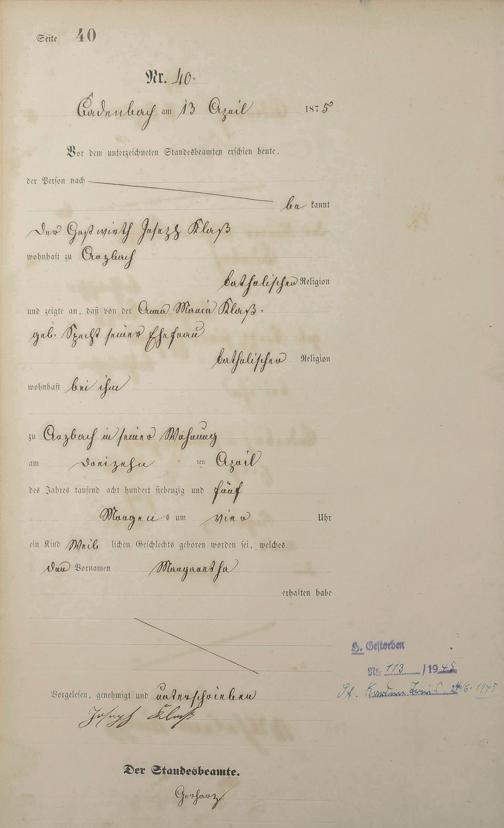 Seite 40
Nr. 40.
Cadenbach am 13 April 1875
Vor dem unterzeichneten Standesbeamten erschien heute,
der Person nach
be kannt
der Gastwirth Joseph Klaß
wohnhaft zu Arzbach
katholischer Religion
und zeigte an, daß von der Anna Maria Klaß,
geb. Specht seiner Ehefrau
katholischer Religion
wohnhaft bei ihm
zu Arzbach in seiner Wohnung
am dreizehn ten April
des Jahres tausend acht hundert siebenzig und fünf
Morgen s um vier Uhr
ein Kind Weib lichen Geschlechts geboren worden sei, welches
den Vornamen Margaretha
erhalten habe
Vorgelesen, genehmigt und unterschrieben
Joseph Klaß
Der Standesbeamte.
Gerharz
H. Gestorben
Nr. 113 /1945
1945